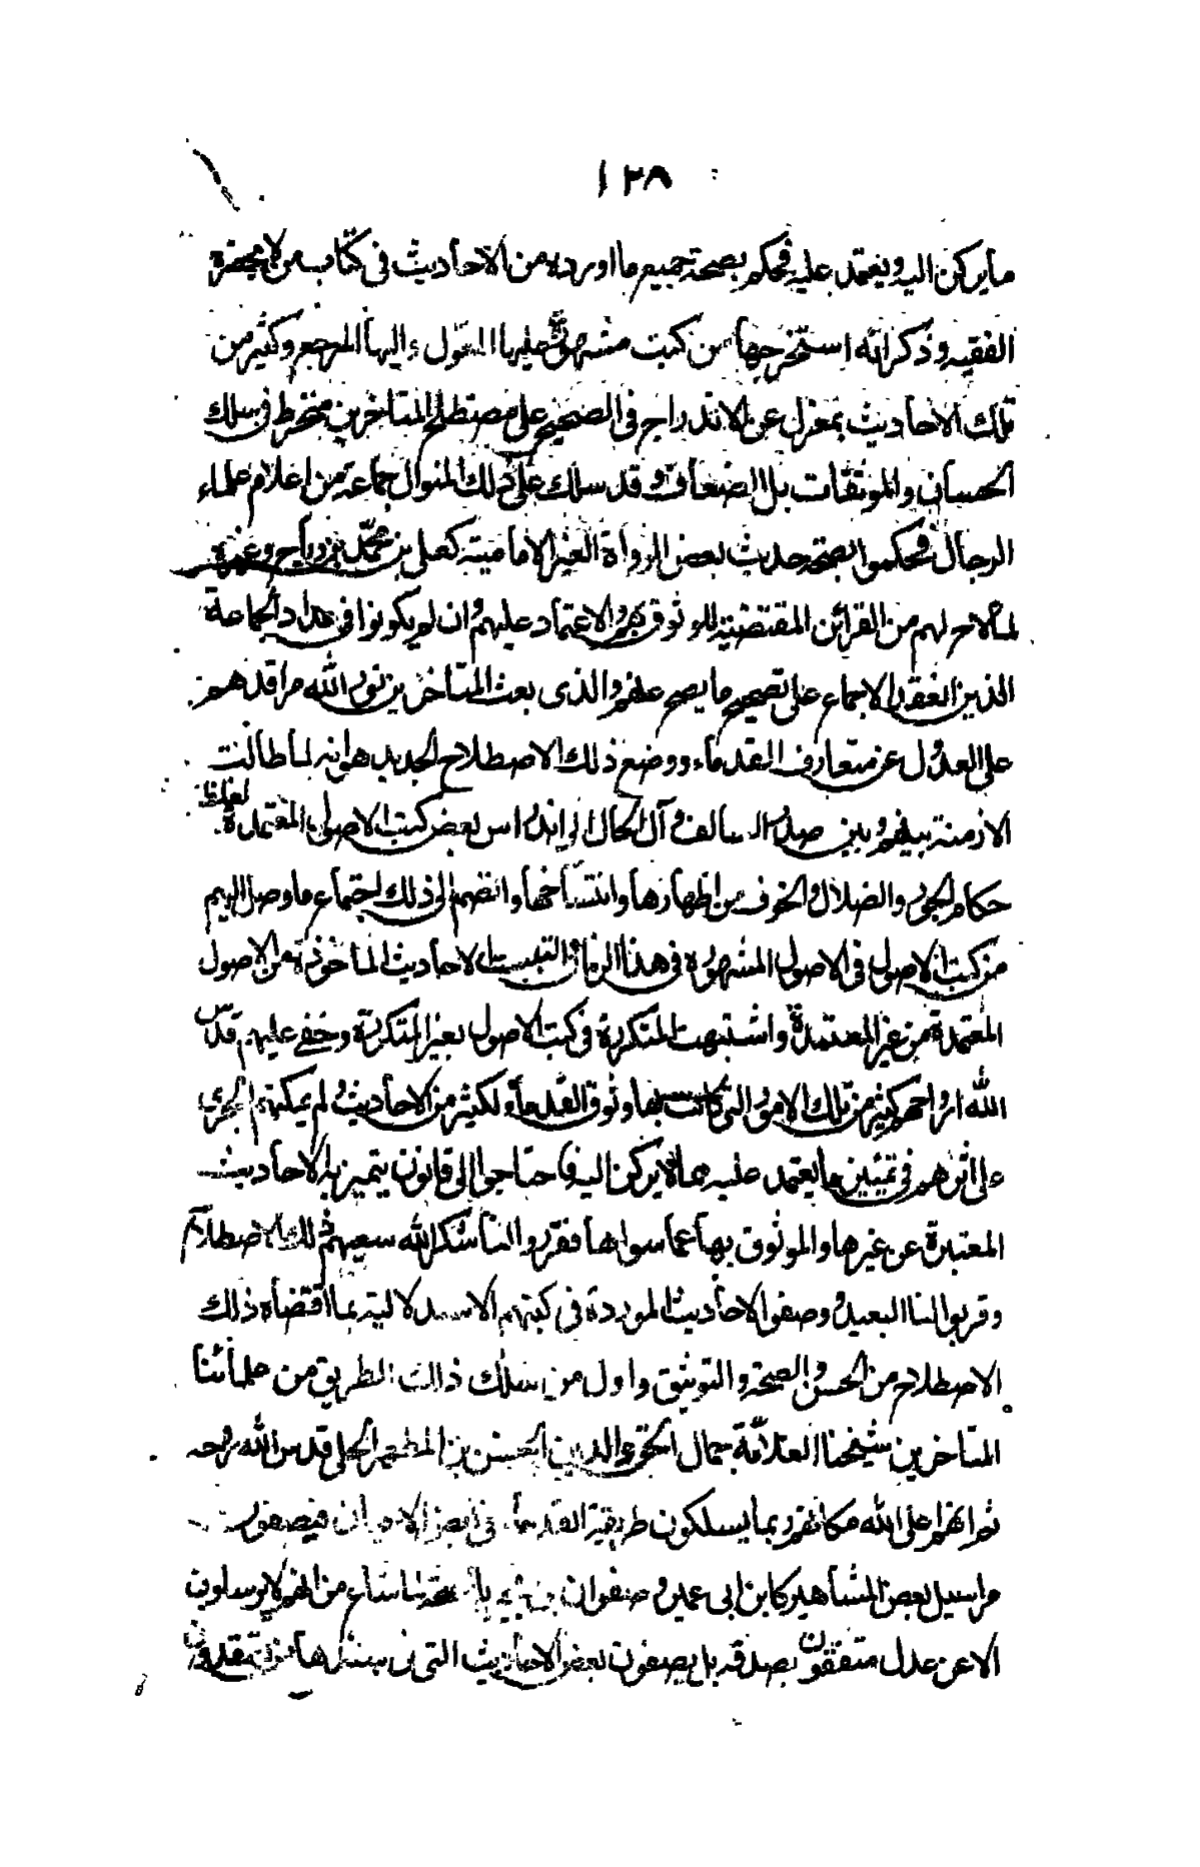 ١٢٨
ما يركن اليه ويعتمد عليه فحكم بصحة جميع ما اورده من الاحاديث في كتاب من لا يحضره
الفقيه وذكر انه استخرجها من كتب مشهورة عليها المعول واليها المرجع وكثير من
تلك الاحاديث بمعزل عن الاندراج في الصحيح على مصطلح المتاخرين منخرط في سلك
الحسان والموثقات بل الضعاف وقد سلك على ذلك المنوال جماعة من اعلام علماء
الرجال فحكموا بصحة حديث بعض الرواة الغير الامامية كعلي بن محمد بن رباح وغيره
لما لاح لهم من القرائن المقتضية للوثوق بهم والاعتماد عليهم وان لم يكونوا في عداد الجماعة
الذين انعقد الاجماع على تصحيح ما يصح عنهم والذى بعث المتاخرين نور الله مراقدهم
على العدول عن متعارف القدماء ووضع ذلك الاصطلاح الجديد هو انه لما طالت
الازمنة بينهم وبين صدر السالف وآل الحال الى اندراس بعض كتب الاصول المعتمدة لغلظ
حكام الجور والضلال والخوف من اظهارها وانتساخها وانضم الى ذلك اجتماع ما وصل اليهم
من كتب الاصول في الاصول المشهورة في هذا الزمان التبست الاحاديث الماخوذة من الاصول
المعتمدة من غير المعتمدة واشتبهت المتكررة في كتب الاصول بغير المتكررة وخفي عليهم قدس
الله ارواحهم كثير من تلك الامور التي كانت بها وثوق القدماء لكثير من الاحاديث ولم يمكنهم الجري
على اثرهم في تميّيز ما يعتمد عليه مما لا يركن اليه فاحتاجوا الى قانون يتميز به الاحاديث
المعتبرة عن غيرها والموثوق بها عما سواها فقرروا لنا شكر الله سعيهم ذلك الاصطلاح
وقربوا لنا البعيد ووصفوا الاحاديث الموردة في كتبهم الاستدلالية بما اقتضاه ذلك
الاصطلاح من الحسن والصحة والتوثيق واول من سلك ذلك الطريق من علمائنا
المتاخرين شيخنا العلامة جمال الحق والدين الحسن بن المطهر الحلي قدس الله روحه
ثم انهم اعلى الله مكانهم ربما يسلكون طريقة القدماء في بعض الاحيان فيصفون
مراسيل بعض المشاهير كابن ابي عمير وصفوان بن يحيى بالصحة لما شاع من انهم لا يرسلون
الا عن عدل متفقون بصدقه بل يصفون بعض الاحاديث التي في سندها من يعتقدون